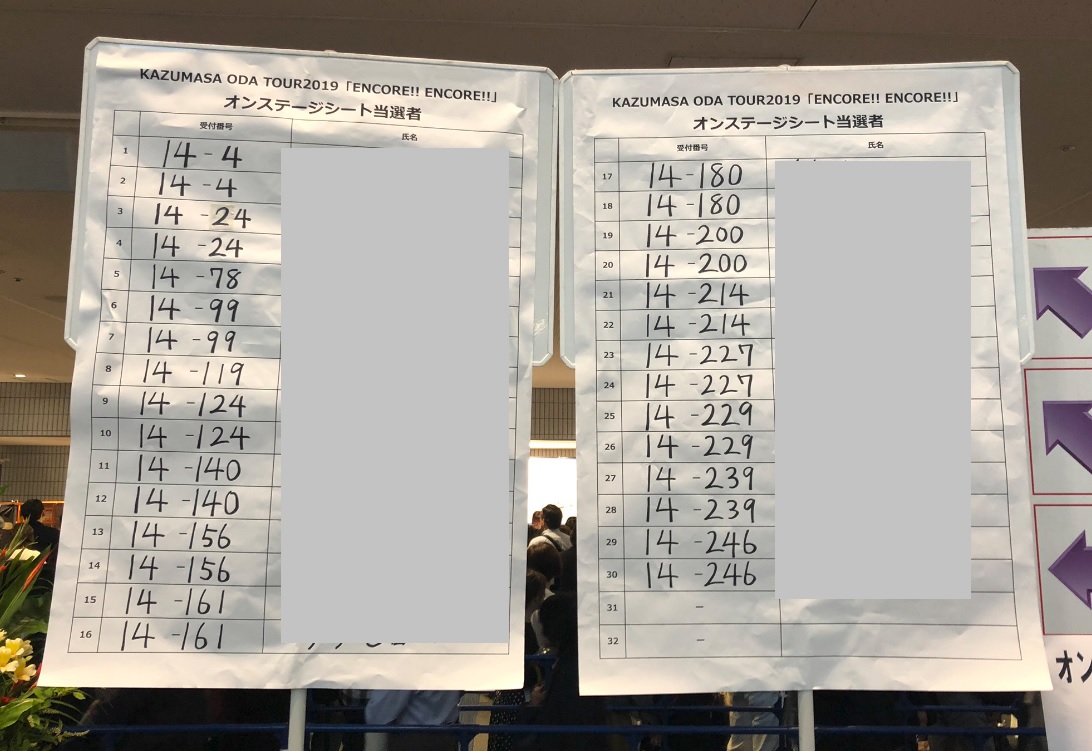 KAZUMASA ODA TOUR2019「ENCORE!! ENCORE!!」
オンステージシート当選者
受付番号 氏名
1 14-4
2 14-4
3 14-24
4 14-24
5 14-78
6 14-99
7 14-99
8 14-119
9 14-124
10 14-124
11 14-140
12 14-140
13 14-156
14 14-156
15 14-161
16 14-161
KAZUMASA ODA TOUR2019「ENCORE!! ENCORE!!」
オンステージシート当選者
受付番号 氏名
17 14-180
18 14-180
19 14-200
20 14-200
21 14-214
22 14-214
23 14-227
24 14-227
25 14-229
26 14-229
27 14-239
28 14-239
29 14-246
30 14-246
31 -
32 -
オン